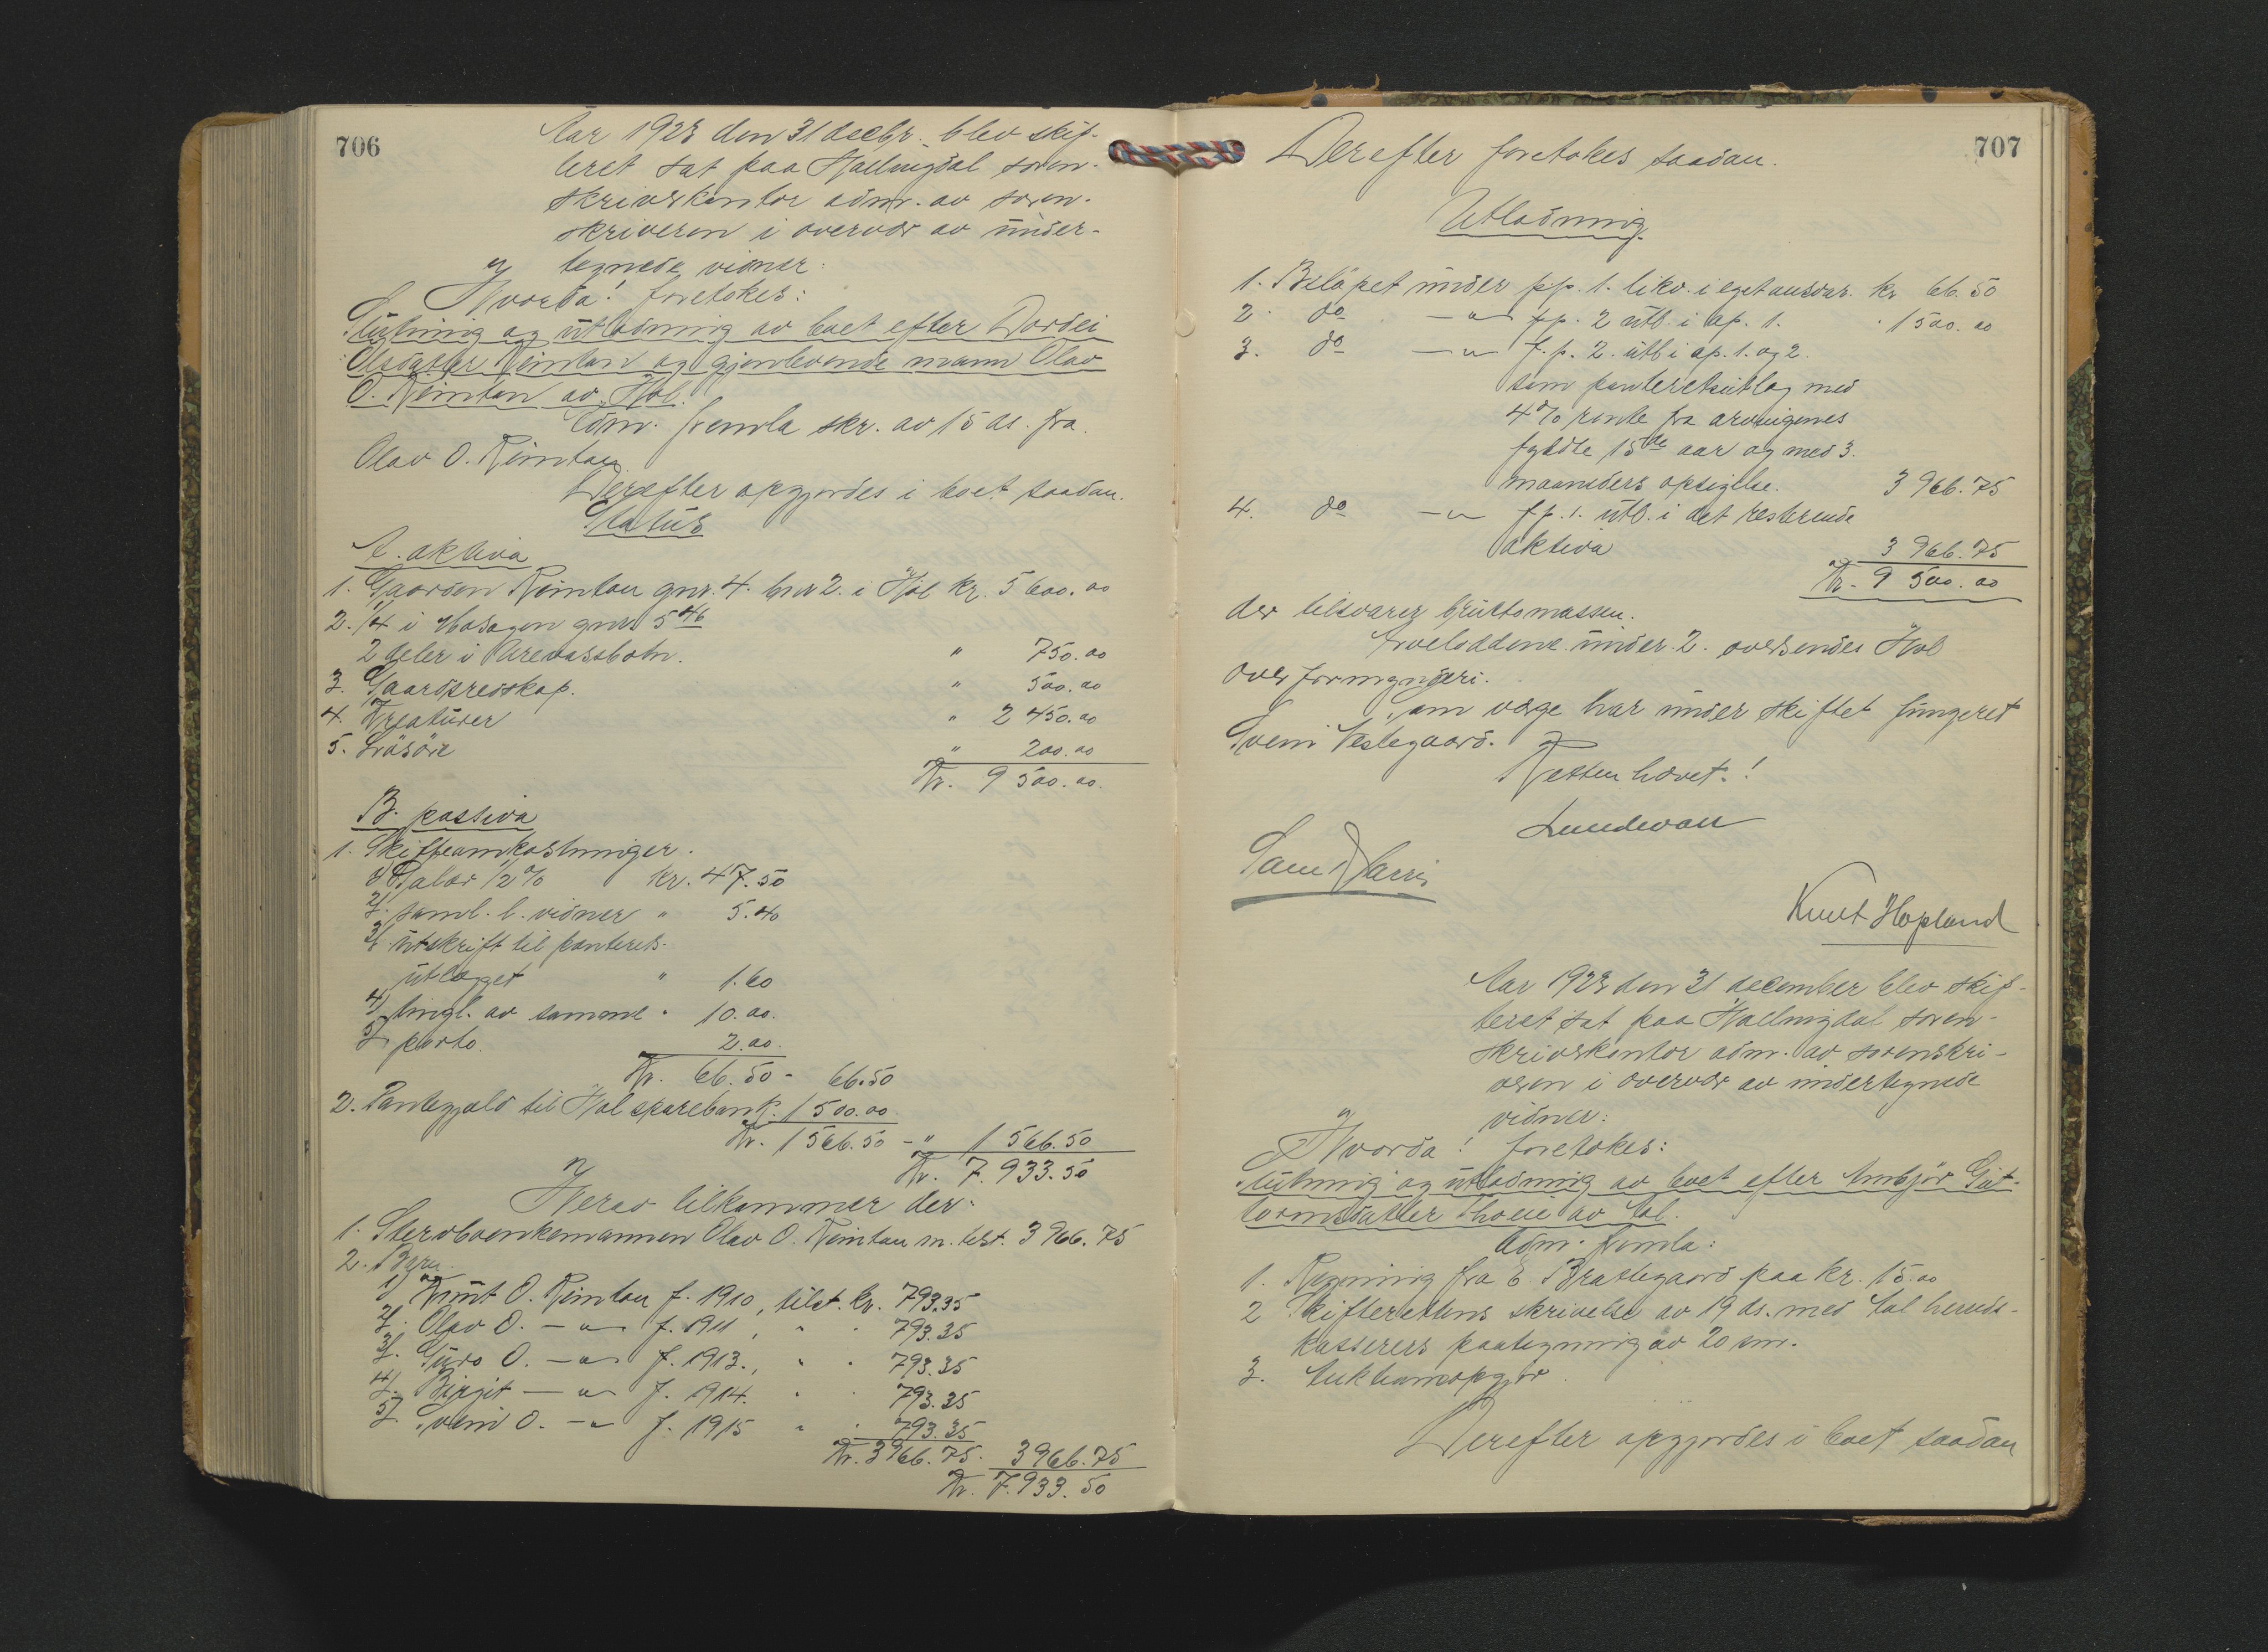 706
Aar 1923 den 31 decbr. blev skif-
teret sat paa Hallingdal soren-
skriverkontor adm. av soren-
skriveren i overvær av under-
tegnede vidner:
Hvorda! foretokes:
Slutning og utlodning av boet efter Dordei
Olsdatter Reintan og gjenlevende mann Olav
O. Reintan av Hol.
Adm. fremla skr. av 15 ds. fra
Olav O. Reintan
Derefter opgjordes i boet saadan.
Status
A. aktiva
1. Gaarden Reintan gnr. 4. bnr 2. i Hol kr. 5 600.00
2. 1/4 i gnr 5 46
2 deler i " 750.00
3. Gaardsredskap. " 500.00
4. Kreaturer " 2 450.00
5. Løsøre " 200.00
Kr. 9 500.00.
B. passiva
1. Skifteomkostninger.
1) Salær 1/2 % kr. 47.50
2) saml. l. vidner " 5.40
3) utskrift til panterets-
utlægget " 1.60
4) tingl. av samme " 10.00.
5) porto. 2.00.
Kr. 66.50 - 66.50
2. Pantegjæld til Hol sparebank. 1 500.00
Kr. 1 566.50 - " 1 566.50
Kr. 7.933.50
Herav tilkommer der:
1. Stervboenkemannen Olav O. Reintan m. tilst. 3 966.75
2. Barn.
1) Knut O. Reintan f. 1910, tilst. kr. 793.35
2) Olav O. — " — f. 1911, " " 793.35
3) Guro O. — " — f. 1913., " " 793.35
4) Birgit — " — f. 1914. " " 793.35
5) Svein O. — " — f. 1915 " " 793.35
Kr. 3966.75. 3 966.75
Kr. 7.933.50
707
Derefter foretokes saadan.
Utlodning
1. Beløpet under pp. 1. likv. i eget ansvar. kr 66.50
2. do — " — pp. 2 utl. i ap. 1. " 1 500.00
3. do — " — f.p. 2. utl i ap. 1. og 2.
som panteretsutlæg med
4% rente fra arvingenes
fyldte 15de aar og med 3.
maaneders opsigelse. 3 966.75
4. do — " — f.p. 1. utl. i det resterende
aktiva 3 966.75
Kr. 9 500.00
der tilsvarer bruttomassen.
Arveloddene under 2. oversendes Hol
overformynderi.
Som værge har under skiftet fungeret
Svein Vestegaard.
Retten hævet.!
Knut Hopland
Aar 1923 den 31 december blev skif-
teret sat paa Hallingdal soren-
skriverkontor adm. av sorenskri-
veren i overvær av undertegnede
vidner:
Hvorda! foretokes:
Slutning og utlodning av boet efter Ambjør Gut-
tormsdatter av Aal.
Adm. fremla:
1. Regning fra E. Brattegaard paa kr. 15.00
2 Skifterettens skrivelse av 19 ds. med Aal herreds-
kasserers paategning av 20 sm.
3. Auktionsopgjør.
Derefter opgjordes i boet saadan